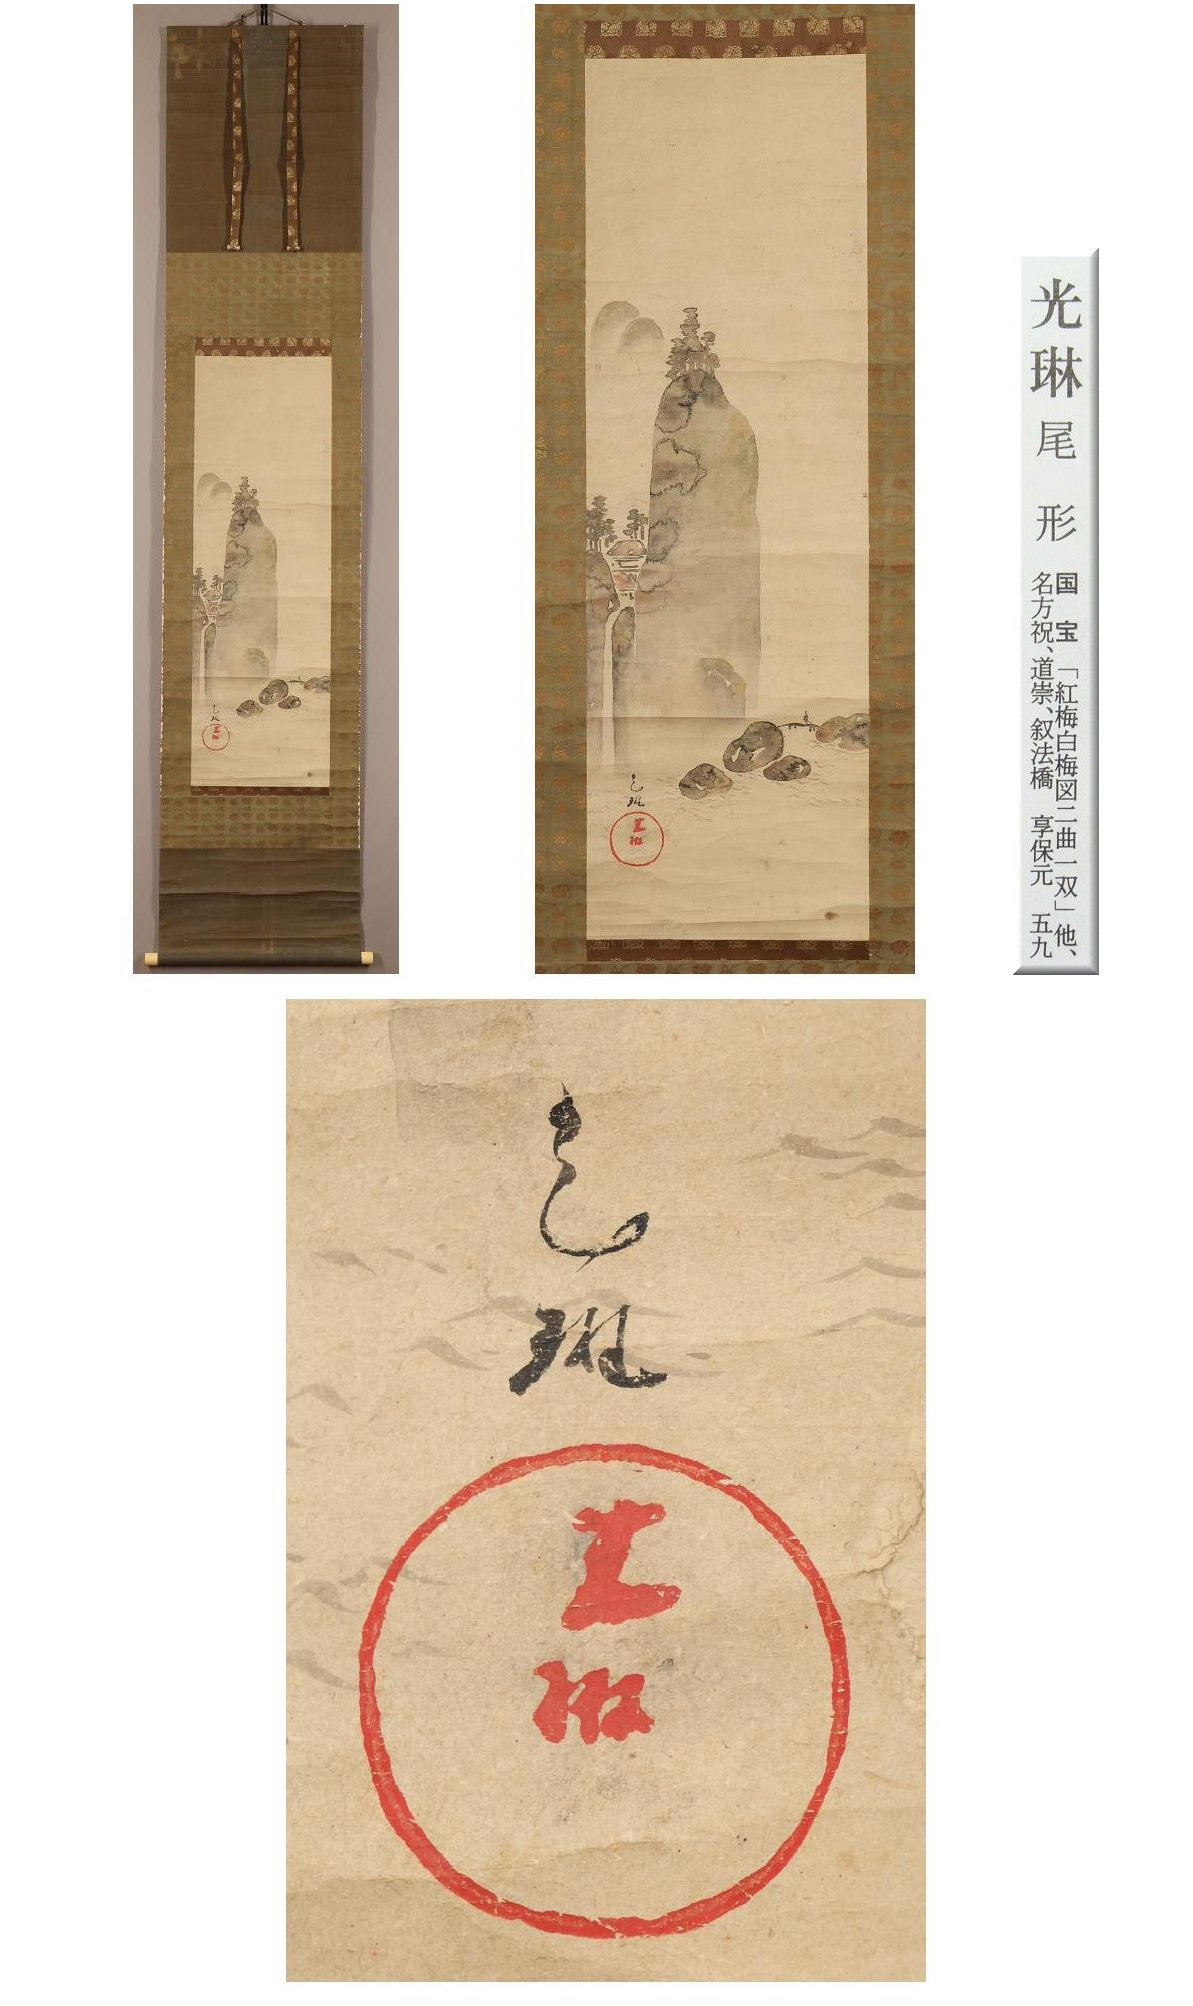 光琳 尾形
国宝「紅梅白梅図二曲一双」他、
名方祝、道崇、叙法橋 享保元 五九
光琳